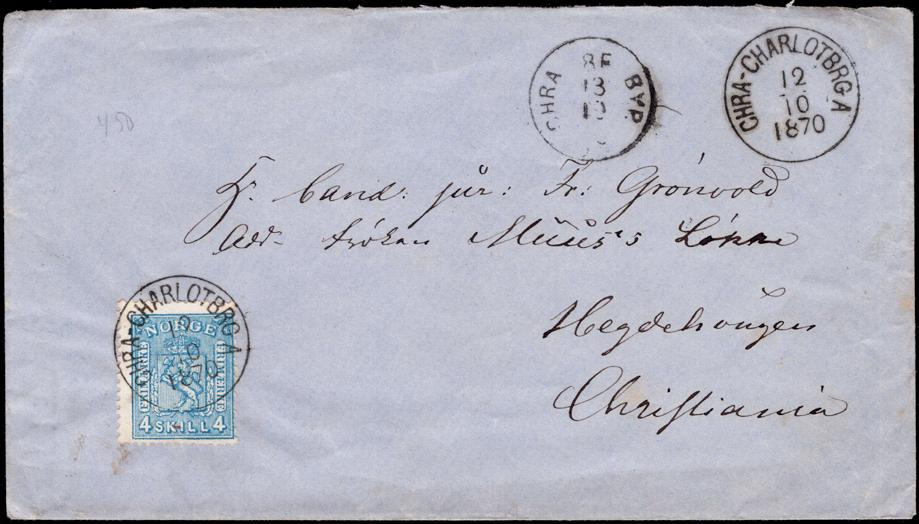 450
CHRA BYP
13
10
CHRA-CHARLOTBRG A
12
10
1870
Hr. Cand: jur: Fr: Grönvold
Add- fröken Müüs's Lökke
Hegdehaŭgen
Christiania
CHRA-CHARLOTBRG A
12
10
1870
NORGE
FRIMÆRKE
4 SKILL 4